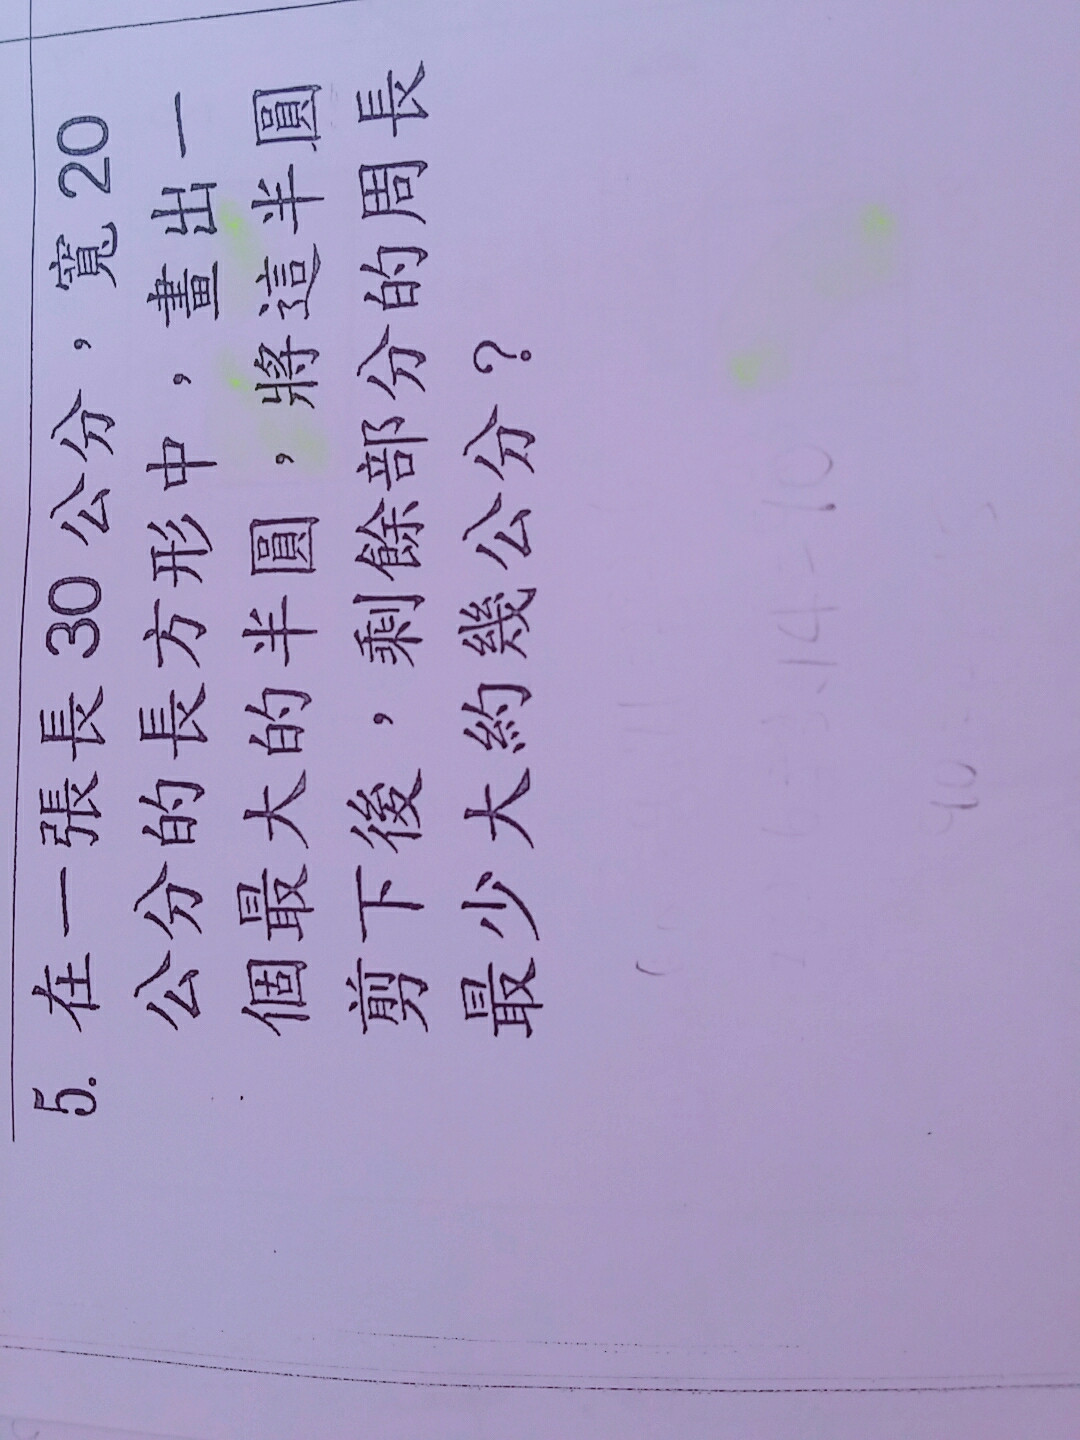 5. 在一張長 30 公分，寬 20
公分的長方形中，畫出一
個最大的半圓，將這半圓
剪下後，剩餘部分的周長
最少大約幾公分？